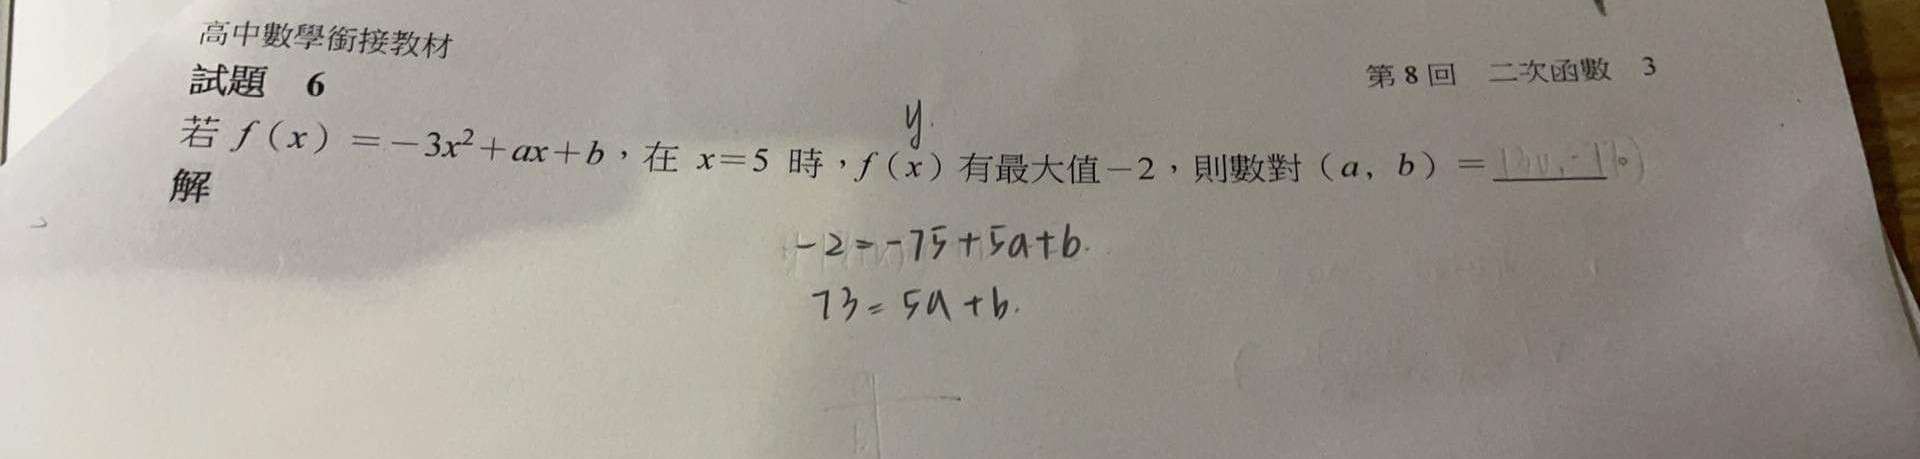 高中數學銜接教材
第 8 回 二次函數 3
試題 6
y.
若 f(x)=-3x²+ax+b，在 x=5 時，f(x) 有最大值-2，則數對(a, b)=
解
-2=-75+5a+b.
73=5a+b.